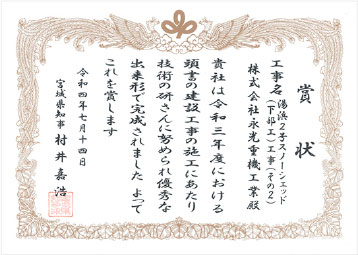 賞状
工事名 湯浜2号スノーシェッド
(下部工)工事(その2)
株式会社永光重機工業殿
貴社は令和三年度における
頭書の建設工事の施工にあたり
技術の研さんに努められ優秀な
出来形で完成されました よって
これを賞します
令和四年七月十四日
宮城県知事 村井嘉浩